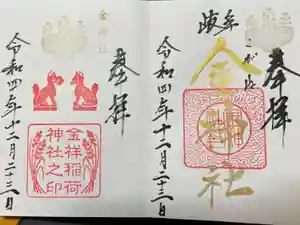 奉拝
金神社
令和四年十二月二十三日
奉拝
金神社
金祥稲荷
神社之印
令和四年十二月二十三日